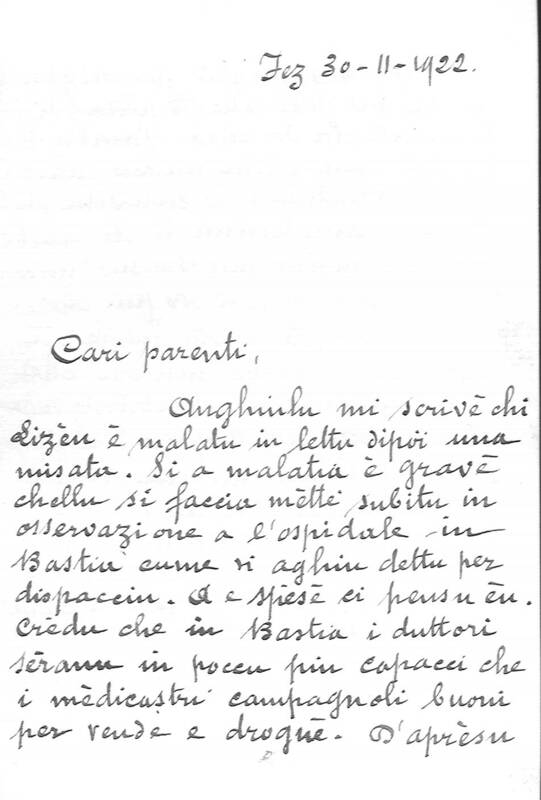 Fez 30-11-1922.
Cari parenti,
Anghiulu mi scrivè chi
Lizèn è malatu in lettu dipoi una
misata. Si a malatia è gravè
chellu si faccia mètte subitu in
osservazione a l'ospidale in
Bastia cume vi aghiu dettu per
dispacciu. A e spesè ci pensu èu.
Crèdu che in Bastia i duttori
sèranu in poccu piu capacci che
i mèdicastri campagnoli buoni
per vende e droguè. D'aprèsu